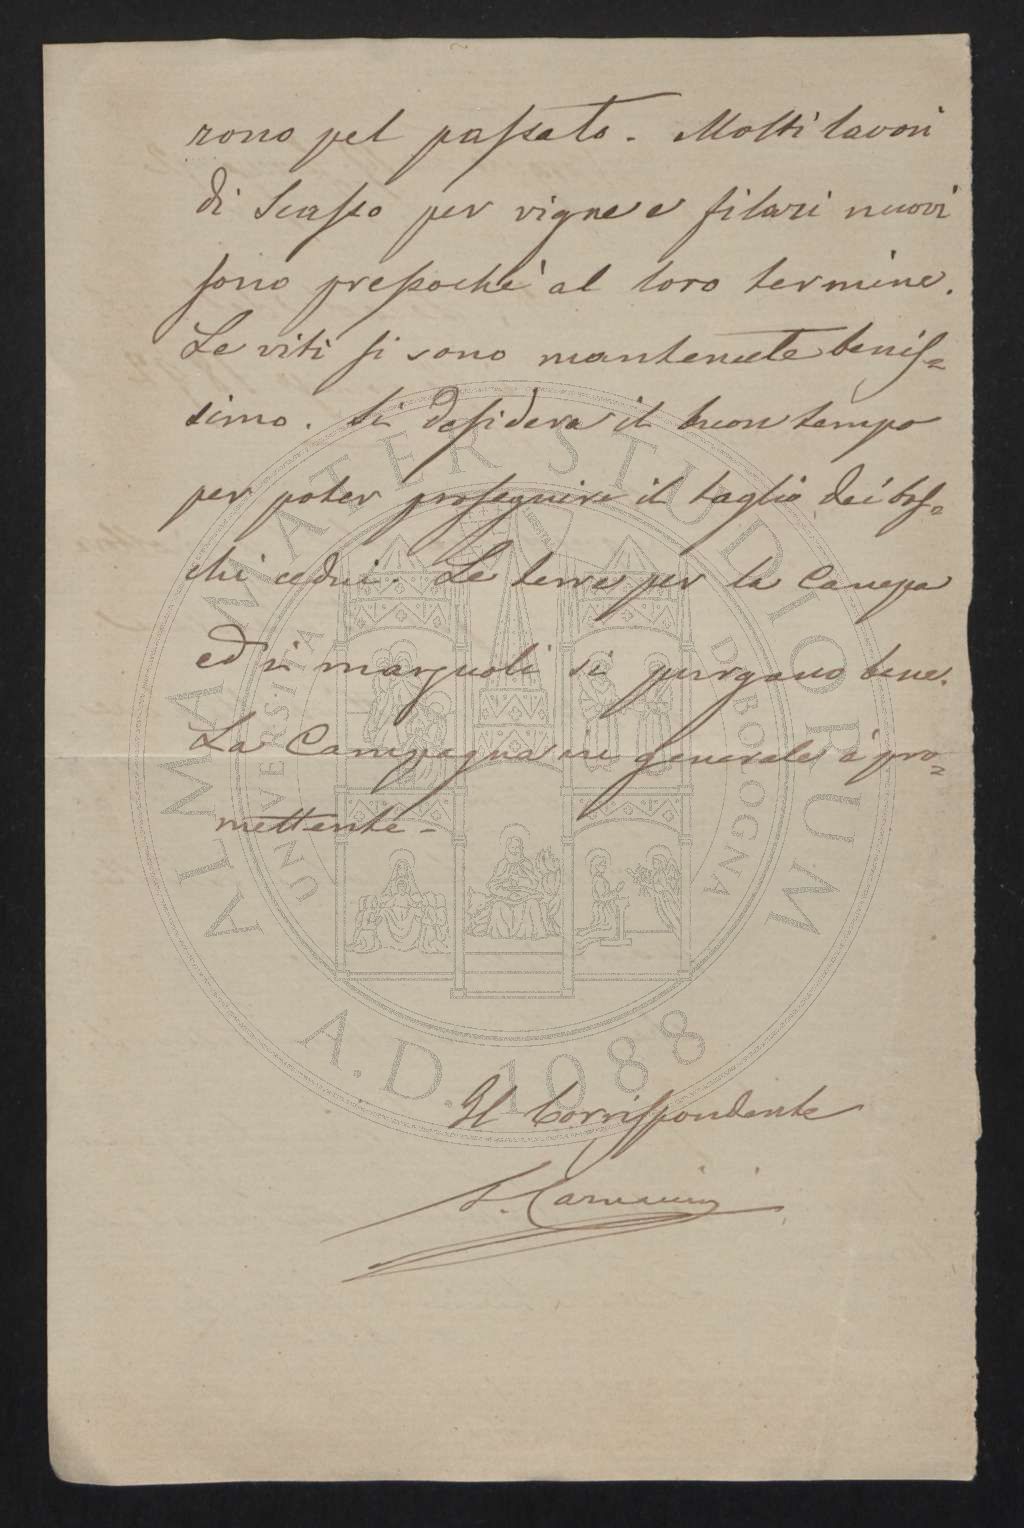 rono pel passato. Molti lavori
di Scasso per vigne e filari nuovi
sono pressochè al loro termine.
Le viti si sono mantenute benis=
simo. Si desidera il buon tempo
per poter proseguire il taglio dei bos=
chi cedui. Le terre per la Canepa
ed i marzuoli si purgano bene.
La Campagna in generale è pro=
mettente -
Il Corrispondente
ALMA MATER STUDIORUM
UNIVERSITÀ DI BOLOGNA
A.D. 1088